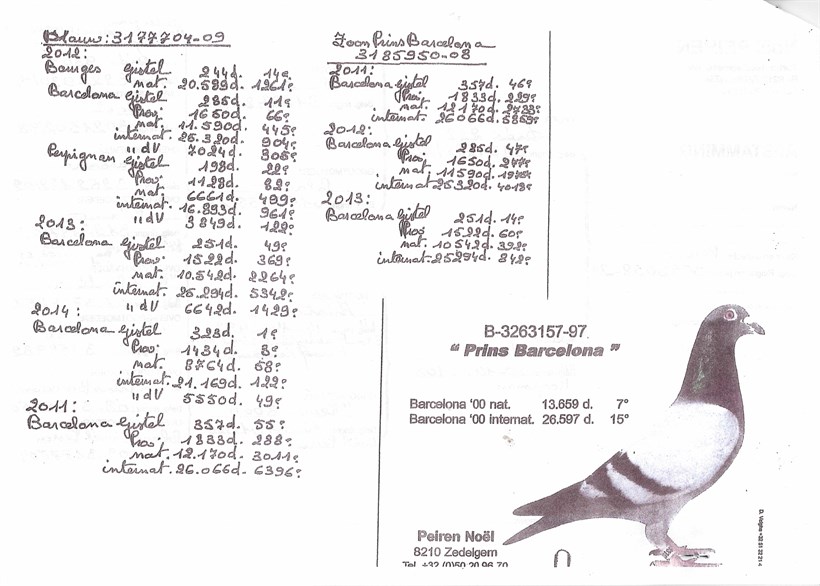 Blauw: 3177704-09
2012:
Bourges Gistel 244d. 14e
nat. 20.589d. 1261e
Barcelona Gistel 285d. 11e
Prov. 1650d. 66e
nat. 11.590d. 445e
internat. 25.320d. 904e
"dV 7024d. 305e
Perpignan Gistel 198d. 22e
Prov. 1128d. 82e
nat. 6661d. 499e
internat. 16.893d. 961e
"dV 3849d. 122e
2013:
Barcelona Gistel 251d. 49e
Prov. 1522d. 369e
nat. 10.542d. 2264e
internat. 25.294d. 5342e
"dV 6642d. 1429e
2014:
Barcelona Gistel 328d. 1e
Prov. 1434d. 8e
nat. 8764d. 58e
internat. 21.169d. 122e
"dV 5550d. 49e
2011:
Barcelona Gistel 357d. 55e
Prov. 1833d. 288e
nat. 12.170d. 3011e
internat. 26.066d. 6396e
Zoon Prins Barcelona
3185950-08
2011:
Barcelona Gistel 357d. 46e
Prov. 1833d. 229e
nat. 12170d.
internat. 26066d. 5859e
2012:
Barcelona Gistel 285d. 47e
Prov. 1650d. 277e
nat. 11590d.
internat 25320d. 4018e
2013:
Barcelona Gistel 251d. 14e
Prov. 1522d. 60e
nat. 10542d. 392e
internat. 25294d. 842e
B-3263157-97
" Prins Barcelona "
Barcelona '00 nat. 13.659 d. 7°
Barcelona '00 internat. 26.597 d. 15°
Peiren Noël
8210 Zedelgem
Tel. +32 (0)50 20 96 70